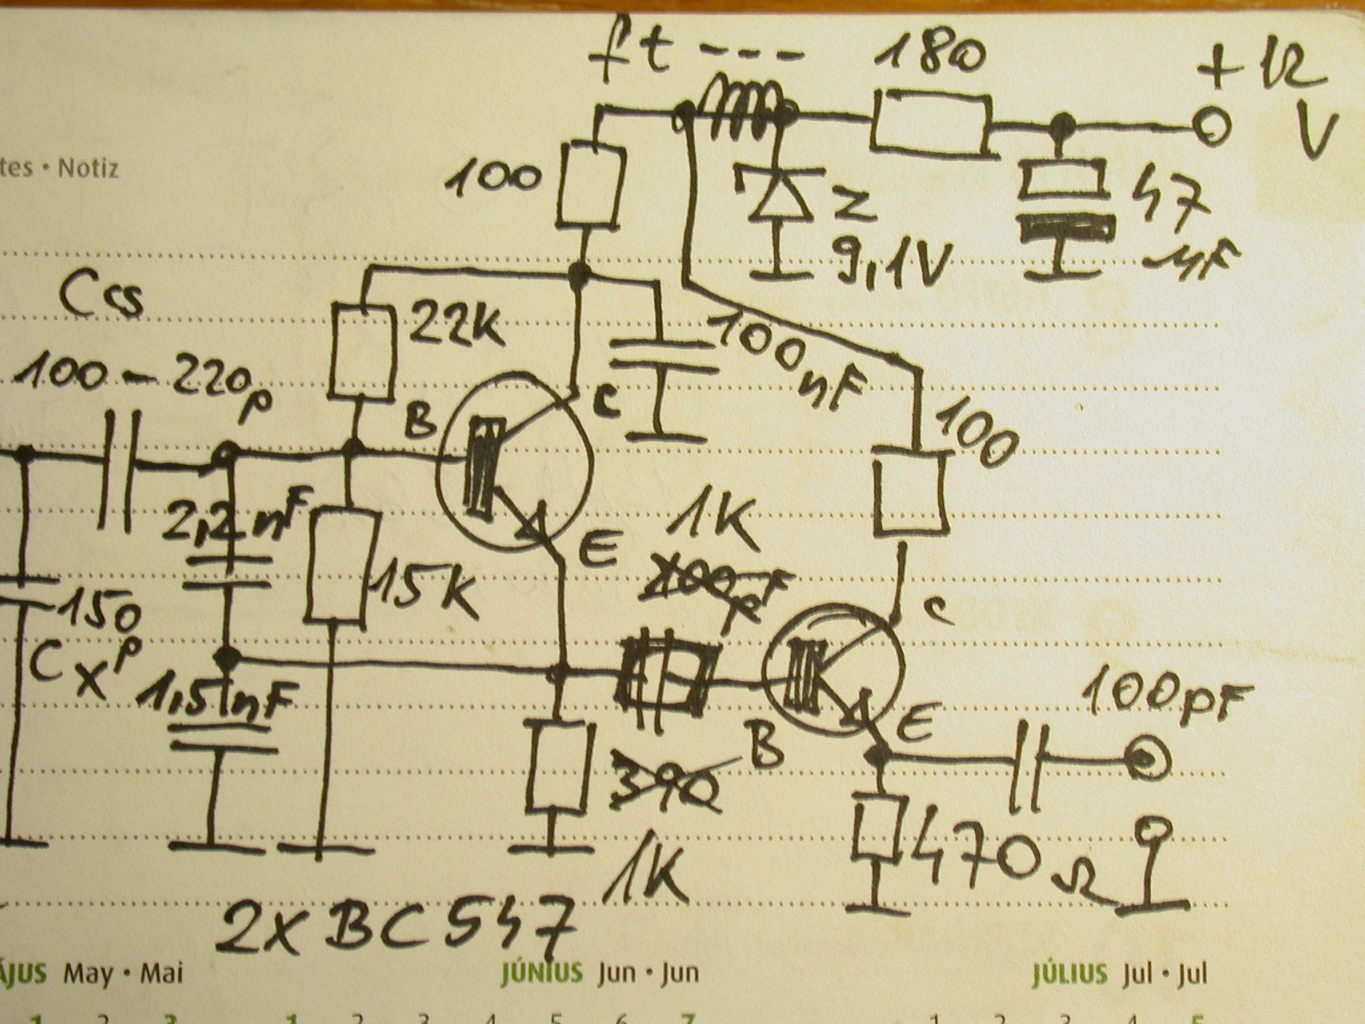 ft ---
180
+ 12 V
tes • Notiz
100
Z
9,1V
47
µF
Ccs
22K
100nF
100 - 220p
B
C
100
2,2nF
1K
E
15K
100pF
150p
C
Cx
1,5nF
100pF
E
B
390
470Ω
1K
2x BC547
ÁJUS May • Mai
JÚNIUS Jun • Jun
JÚLIUS Jul • Jul
1 2 3 1 2 3 4 5 6 7 1 2 3 4 5